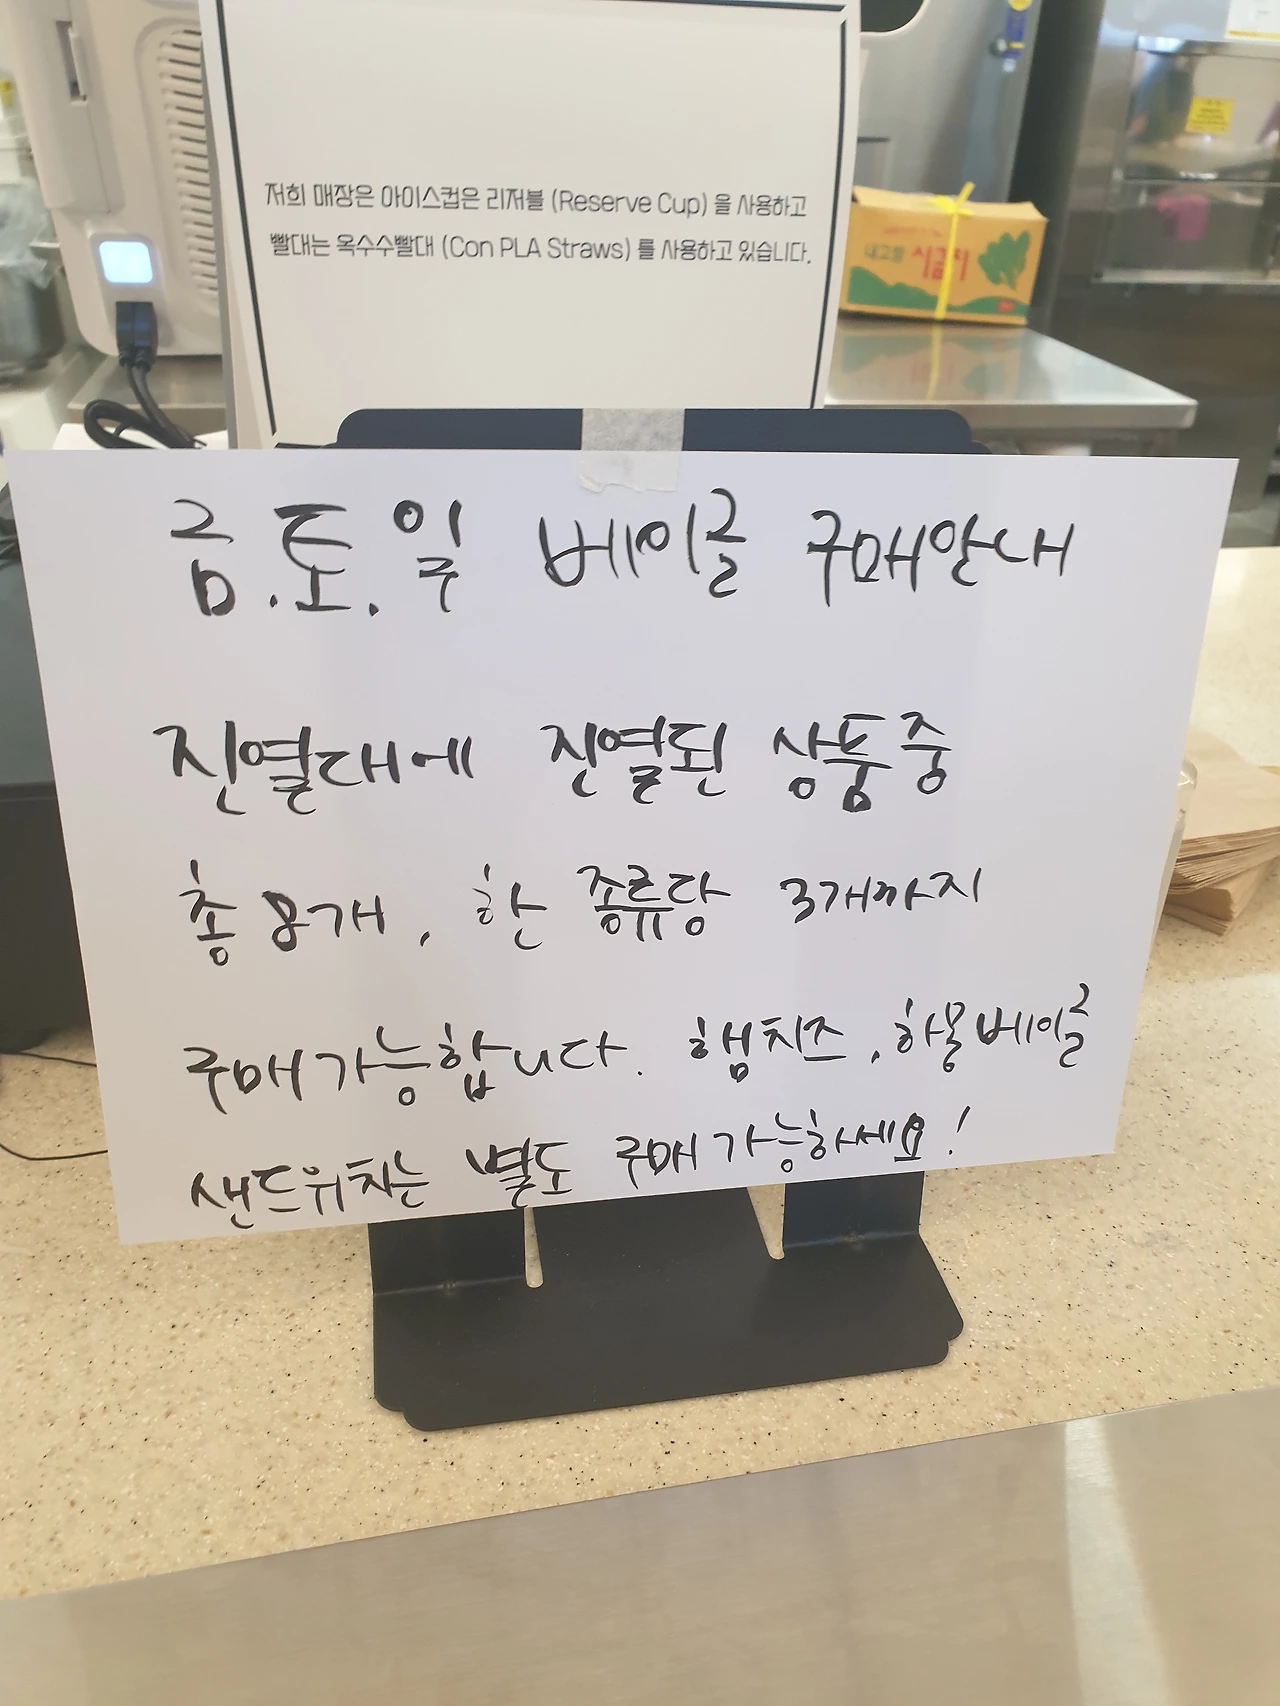 저희 매장은 아이스컵은 리저블 (Reserve Cup) 을 사용하고
빨대는 옥수수빨대 (Con PLA Straws) 를 사용하고 있습니다.
내고향 시금치
금.토.일 베이글 구매안내
진열대에 진열된 상품중
총 8개, 한 종류당 3개까지
구매가능합니다. 햄치즈, 하몽베이글
샌드위치는 별도 구매가능하세요!